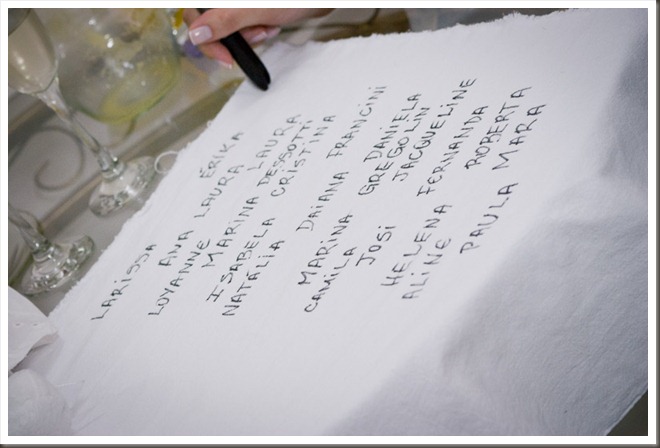 LARISSA
ERIKA
ANA LAURA
LAURA
LOYANNE
MARINA DESSOTTI
ISABELA CRISTINA
NATALIA
DAIANA FRANCINI
MARINA
DANIELA
GREGOLIN
CAMILA
JACQUELINE
JOSI
FERNANDA
HELENA
ROBERTA
ALINE
PAULA MARA